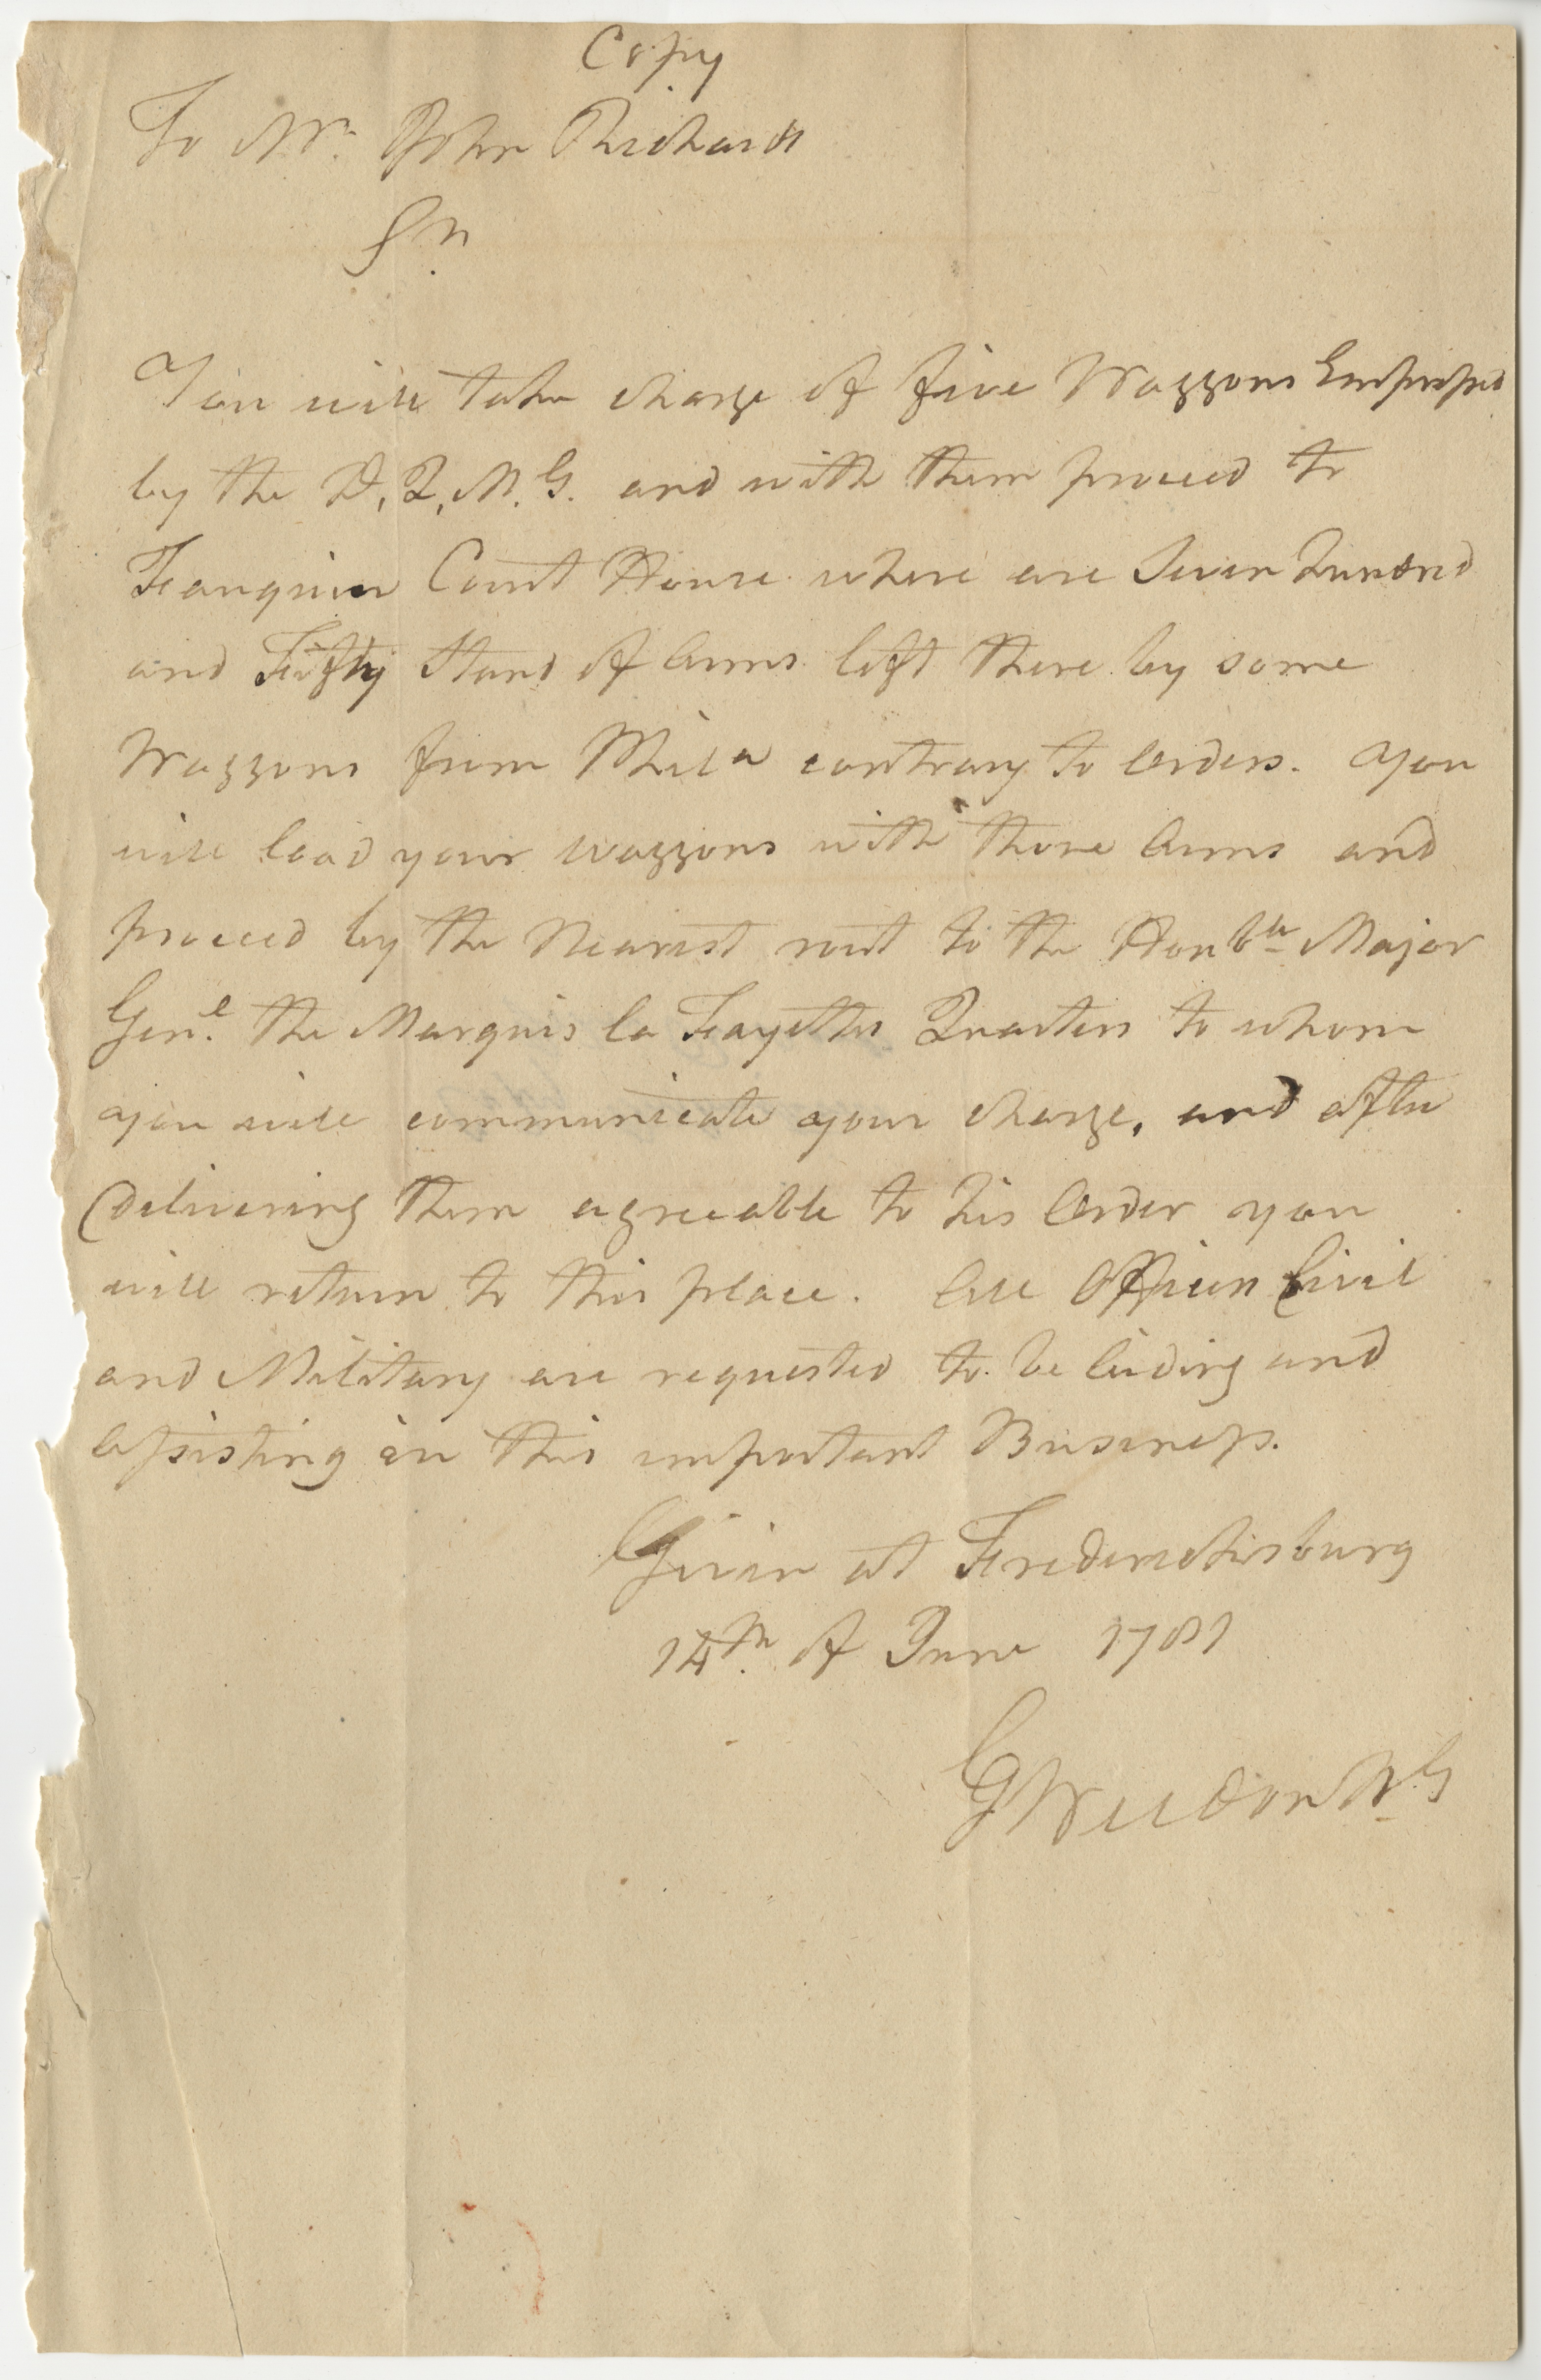 Copy
To Mr. John Richards
Sr.
You will take charge of five Waggons Empressed
by the D, Q, M. G. and with them proceed to
Fauquier Court House where are Seven Hundred
and Fifty Stand of Arms left there by some
Waggons from Phila contrary to Orders. You
will load your Waggons with those Arms and
proceed by the Nearest rout to the Honble Major
Genl. the Marquis la Fayettes Quarters to whom
you will communicate your charge, and after
Delivering them agreeable to his Order you
will return to this place. All Officers Civil
and Military are requested to be Aiding and
Assisting in this important Business.
Given at Fredericksburg
14th. of June 1781
G Weedon B.G